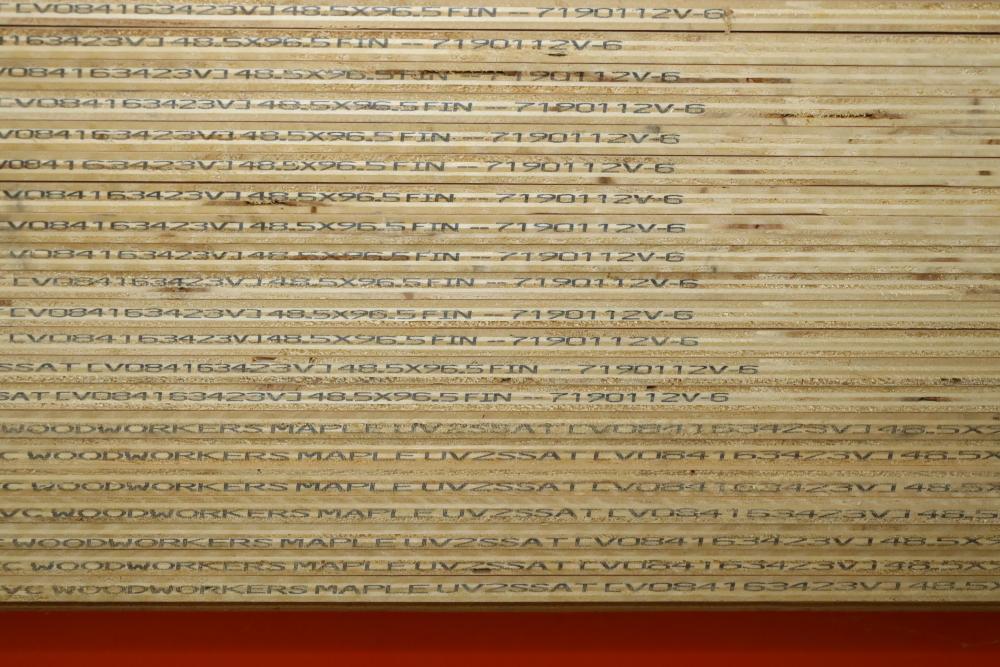 [V084163423V] 48.5X96.5 FIN -- 7190112V-6
163423V] 48.5X96.5 FIN -- 7190112V-6
V084163423V] 48.5X96.5 FIN -- 7190112V-6
[V084163423V] 48.5X96.5 FIN -- 7190112V-6
V084163423V] 48.5X96.5 FIN -- 7190112V-6
V084163423V] 48.5X96.5 FIN -- 7190112V-6
V084163423V] 48.5X96.5 FIN -- 7190112V-6
V084163423V] 48.5X96.5 FIN -- 7190112V-6
V084163423V] 48.5X96.5 FIN -- 7190112V-6
[V084163423V] 48.5X96.5 FIN -- 7190112V-6
[V084163423V] 48.5X96.5 FIN -- 7190112V-6
[V084163423V] 48.5X96.5 FIN -- 7190112V-6
SSAT [V084163423V] 48.5X96.5 FIN -- 7190112V-6
SAT [V084163423V] 48.5X96.5 FIN -- 7190112V-6
WOODWORKERS MAPLE UV2SSAT [V084163423V] 48.5X
C WOODWORKERS MAPLE UV2SSAT [V084163423V] 48.5X
VC WOODWORKERS MAPLE UV2SSAT [V084163423V] 48.5
VC WOODWORKERS MAPLE UV2SSAT [V084163423V] 48.5
C WOODWORKERS MAPLE UV2SSAT [V084163423V] 48.5X
VC WOODWORKERS MAPLE UV2SSAT [V084163423V] 48.5X
VC WOODWORKERS MAPLE UV2SSAT [V084163423V] 48.5